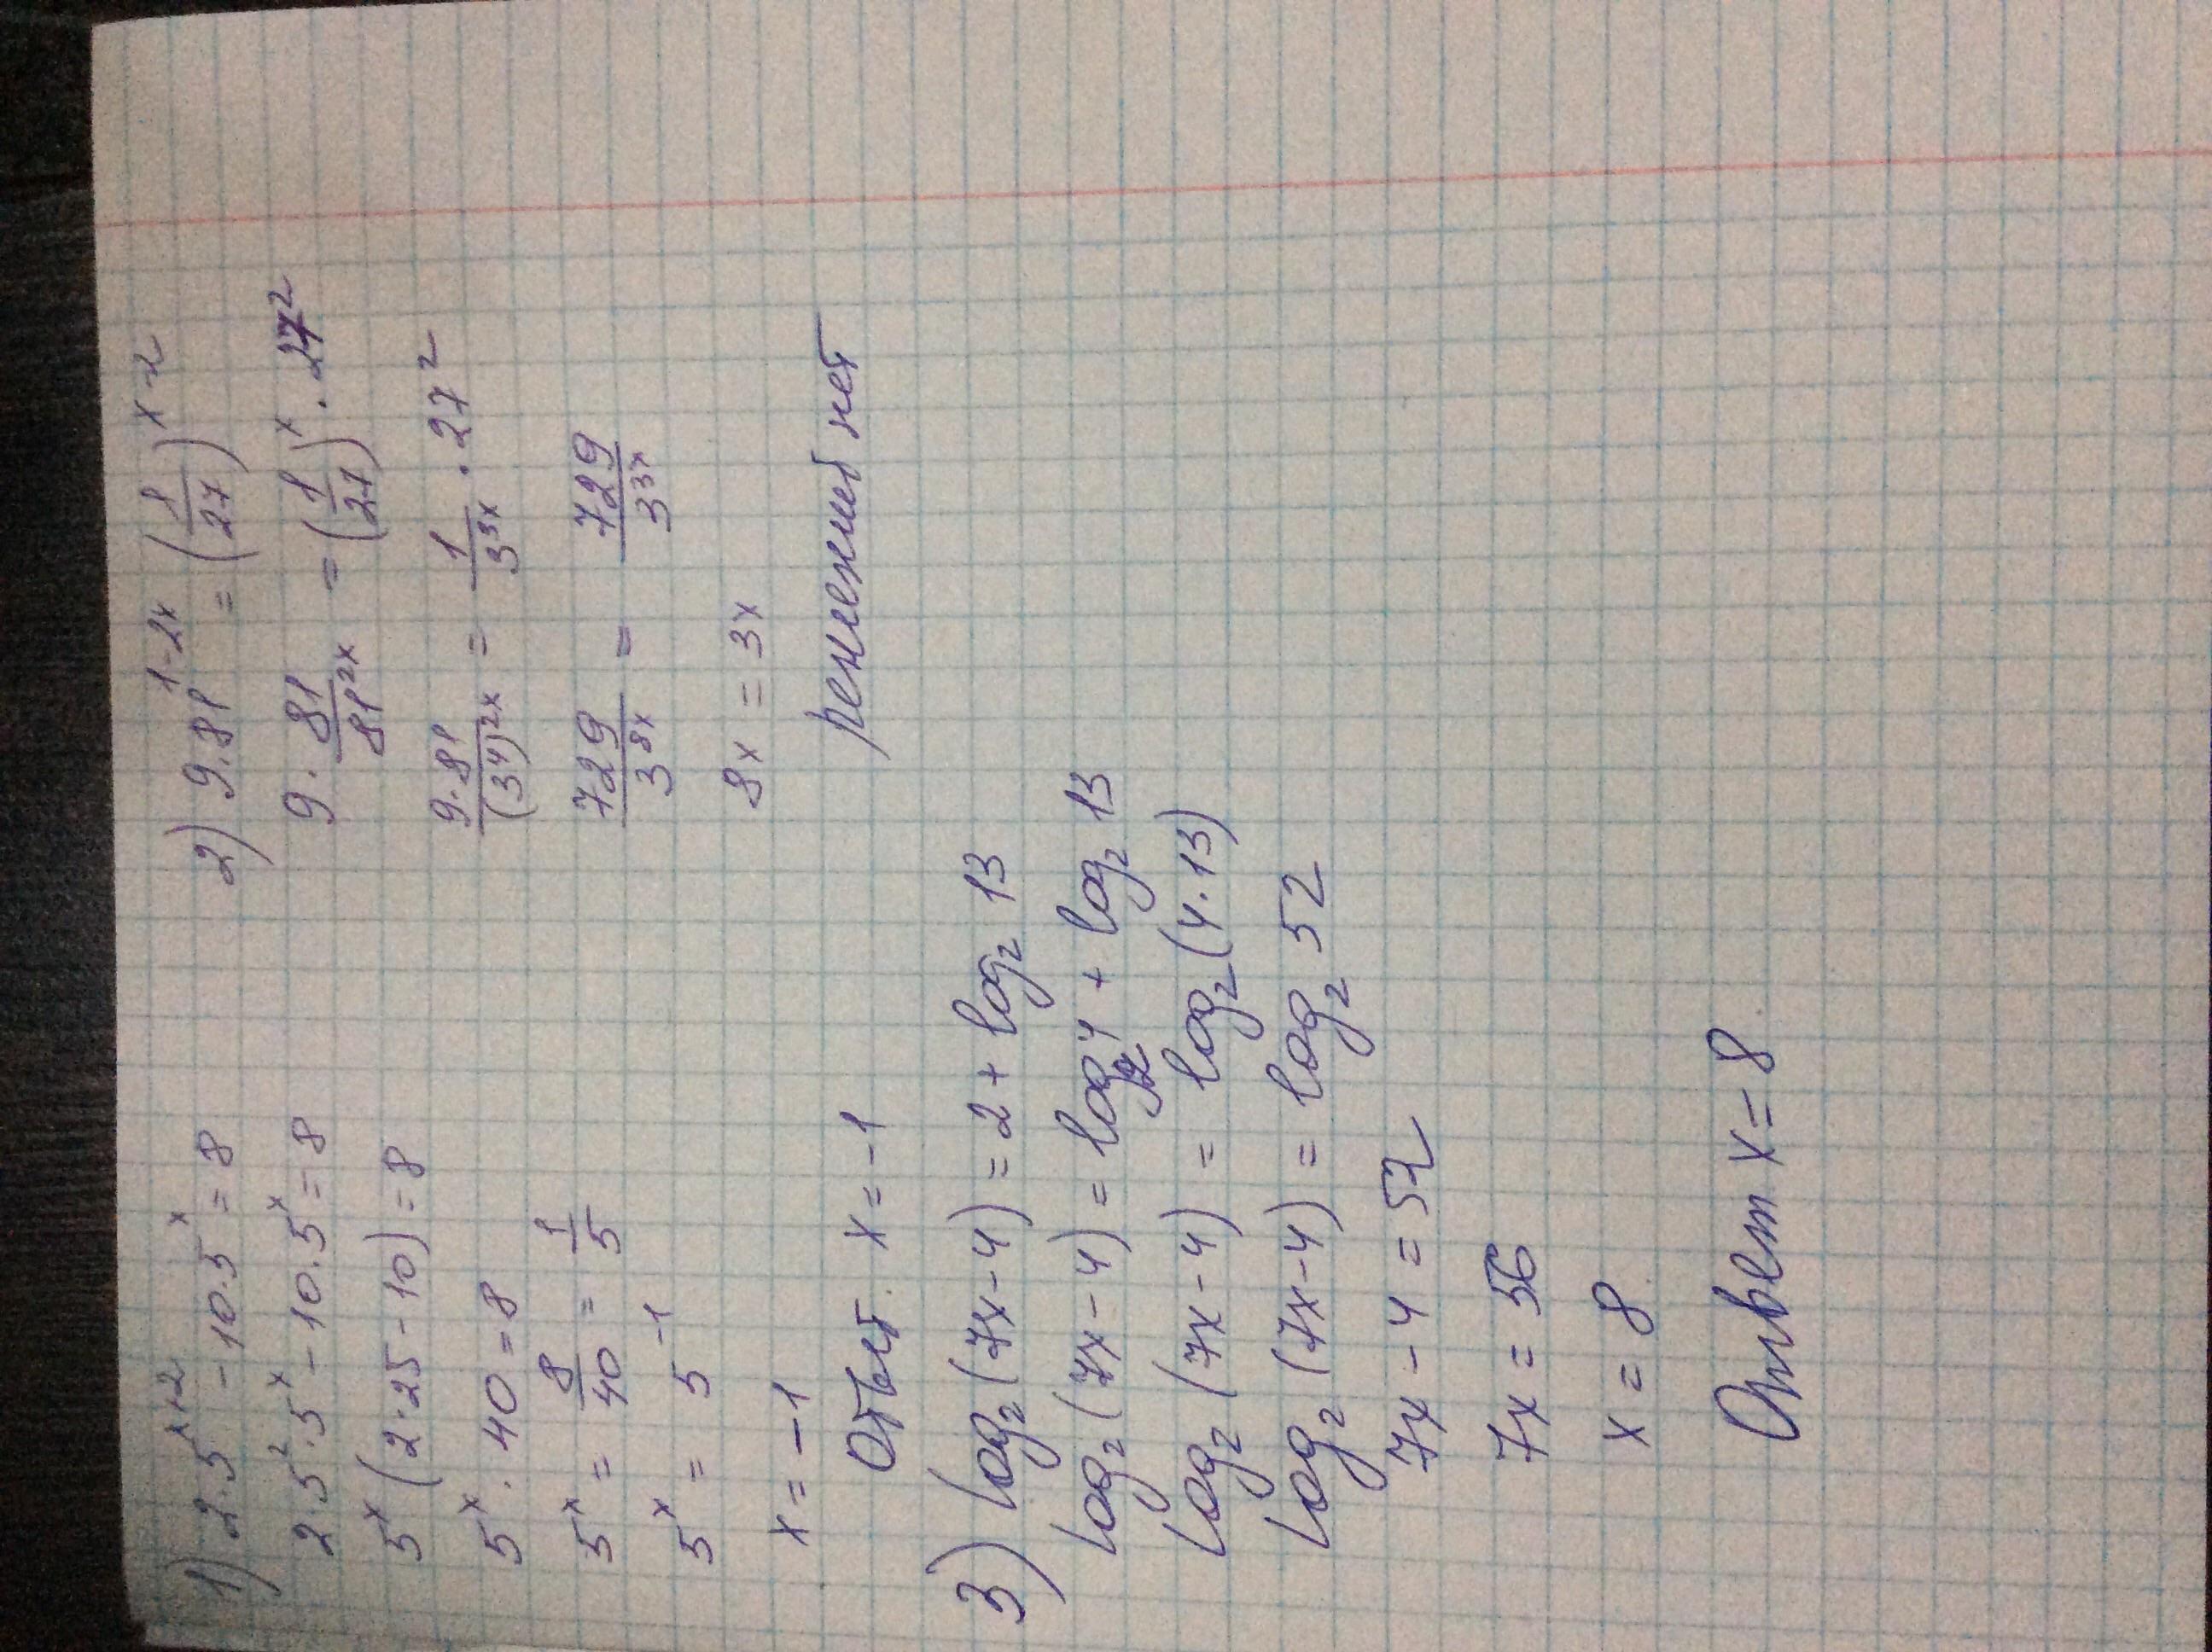 1) 2·5^(x+2) - 10·5^x = 8
2·5²·5^x - 10·5^x = 8
5^x (2·25 - 10) = 8
5^x · 40 = 8
5^x = 8/40 = 1/5
5^x = 5^(-1)
x = -1
Ответ. x = -1
2) 9·81^(1-2x) = (1/27)^(x-2)
9 · 81/81^(2x) = (1/27)^x · 27²
9·81/(3⁴)^(2x) = 1/3^(3x) · 27²
729/3^(8x) = 729/3^(3x)
8x = 3x
решений нет
3) log₂(7x-4) = 2 + log₂ 13
log₂(7x-4) = log₂ 4 + log₂ 13
log₂(7x-4) = log₂(4·13)
log₂(7x-4) = log₂ 52
7x - 4 = 52
7x = 56
x = 8
Ответ x = 8